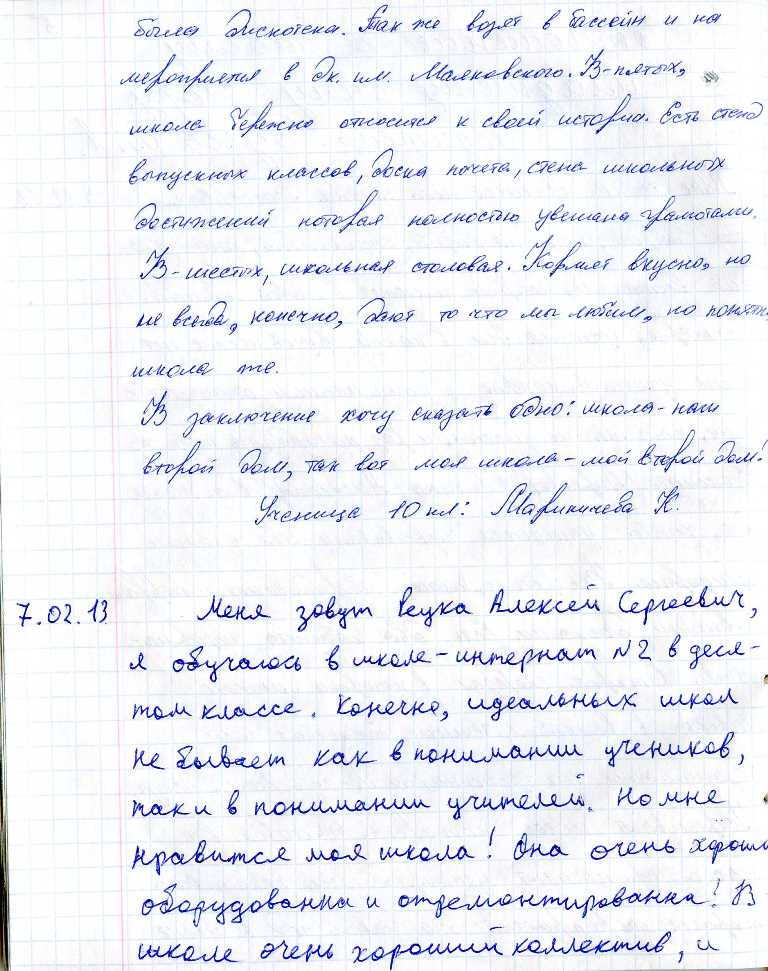 была дискотека. Так же возят в бассейн и на
мероприятия в Дк. им. Маяковского. В-пятых,
школа бережно относится к своей истории. Есть стенд
выпускных классов, доска почета, стена школьных
достижений которая полностью увешана грамотами.
В-шестых, школьная столовая. Кормят вкусно, но
не всегда, конечно, дают то что мы любим, но понятно
школа же.
В заключение хочу сказать одно: школа-наш
второй дом, так вот моя школа-мой второй дом!
Ученица 10 кл: Мариничева К.
7.02.13 Меня зовут Рецка Алексей Сергеевич,
я обучаюсь в школе-интернат №2 в деся-
том классе. Конечно, идеальных школ
не бывает как в понимании учеников,
так и в понимании учителей. Но мне
нравится моя школа! Она очень хорошо
оборудованна и отремонтированна! В
школе очень хороший коллектив, и